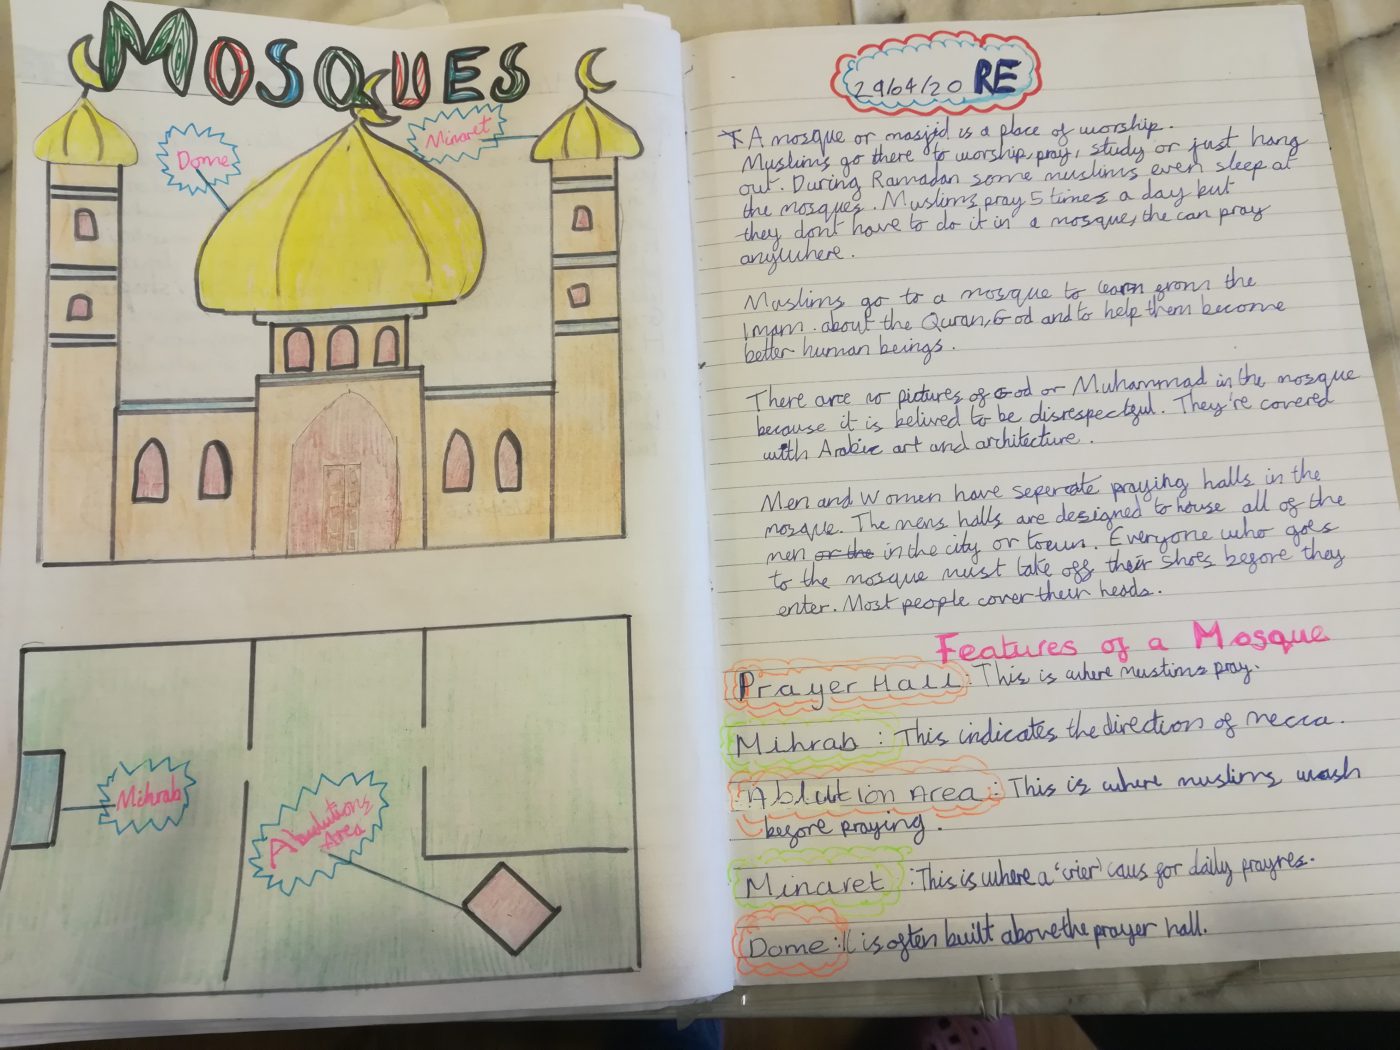 MOSQUES
Dome
Minaret
Mihrab
Abulutions
Area
29/04/20 RE
A mosque or masjid is a place of worship.
Muslims go there to worship, pray, study or just hang
out. During Ramadan some muslims even sleep at
the mosques. Muslims pray 5 times a day but
they dont have to do it in a mosque, the can pray
anywhere.
Muslims go to a mosque to learn from the
Imam. about the Quran, God and to help them become
better human beings.
There are no pictures of God or Muhammad in the mosque
because it is belived to be disrespectful. They're covered
with Arabic art and architecture.
Men and Women have seperate praying halls in the
mosque. The mens halls are designed to house all of the
men or the in the city or town. Everyone who goes
to the mosque must take off their shoes before they
enter. Most people cover their heads.
Features of a Mosque
Prayer Hall: This is where muslims pray.
Mihrab: This indicates the direction of mecca.
Ablution Area: This is where muslims wash
before praying.
Minaret: This is where a 'crier' calls for daily prayres.
Dome: It is often built above the prayer hall.